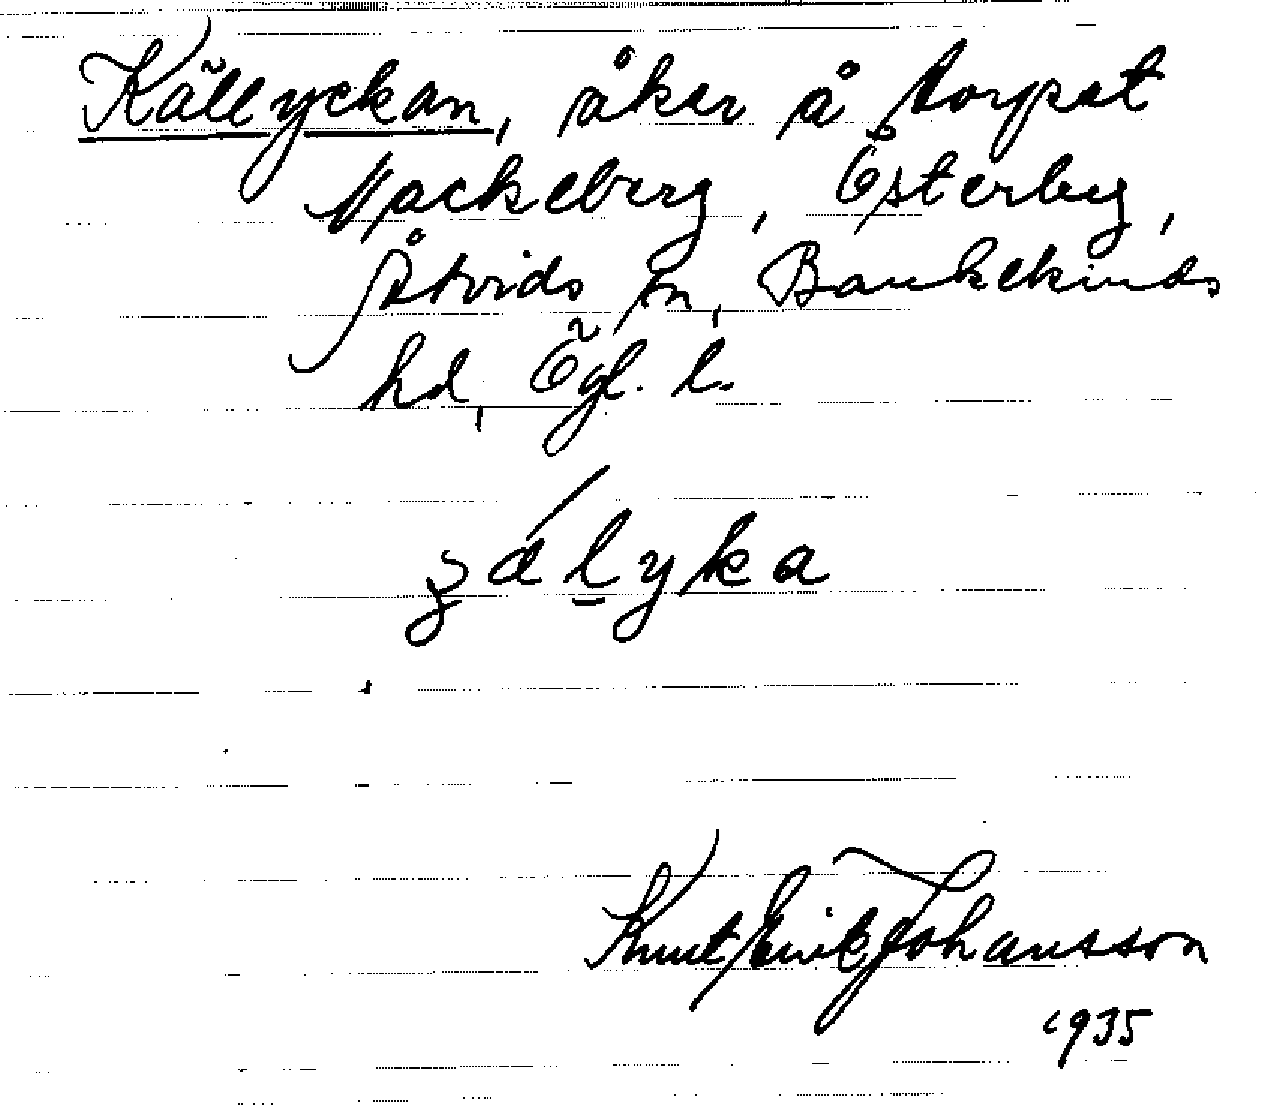 Källyckan, åker å torpet
Mackeberg, Österby,
Åtvids sn, Bankekinds
hd, Ögl. l.
ʒályka
Knut Erik Johansson
1935